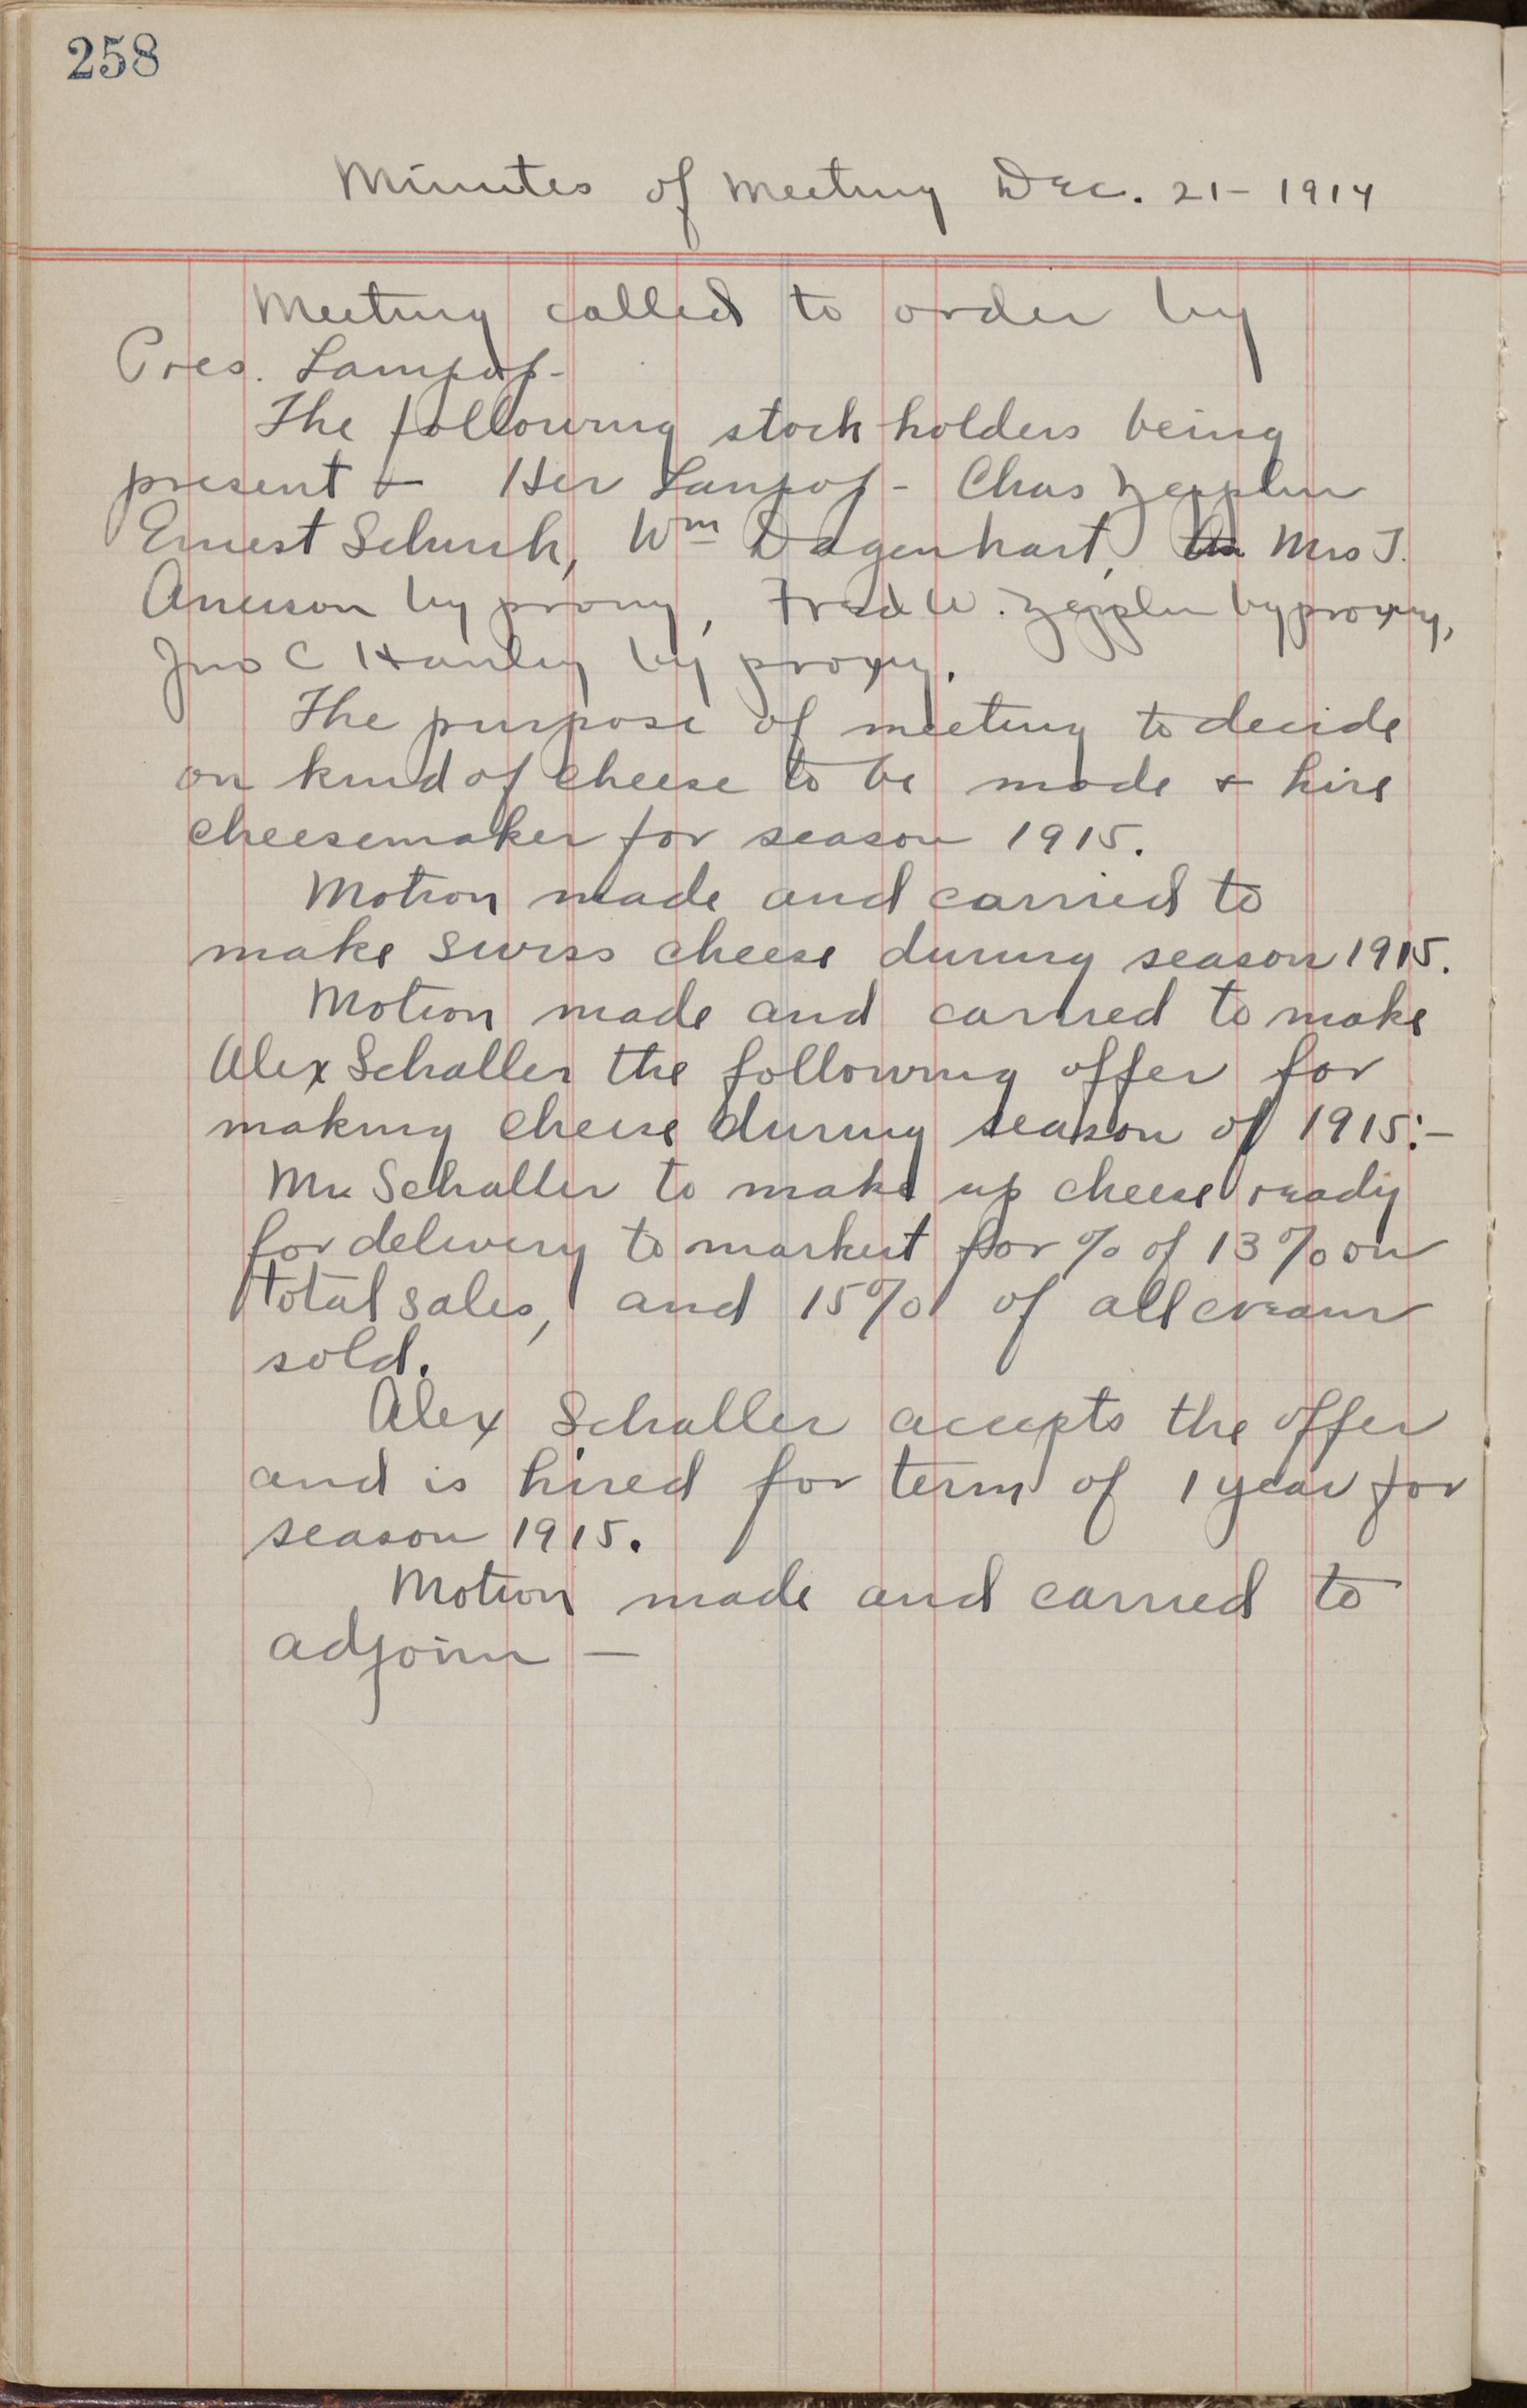 258
Minutes of Meeting Dec. 21 - 1914
Meeting called to order by
Pres. Lampop -
The following stock holders being
present - Her Lampop - Chas Zepplin
Ernest Schurk, Wm Dagenhart, Mrs T.
by proxy, Fred W. Zepplin by proxy,
Jno C Hanley by proxy.
The purpose of meeting to decide
on kind of cheese to be made & hire
cheesemaker for season 1915.
Motion made and carried to
make swiss cheese during season 1915.
Motion made and carried to make
Alex Schaller the following offer for
making cheese during season of 1915:-
Mr. Schaller to make up cheese ready
for delivery to market for % of 13% on
total sales, and 15% of all cream
sold.
Alex Schaller accepts the offer
and is hired for term of 1 year for
season 1915.
Motion made and carried to
adjoin -